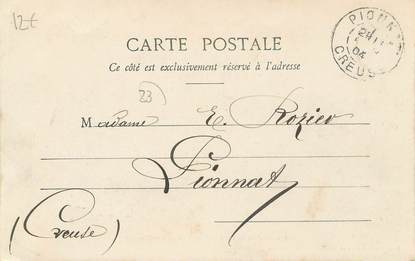 12€
PIONN
24
04
CREUSE
CARTE POSTALE
Ce côté est exclusivement réservé à l'adresse
23
Madame E. Rozier
Pionnat
(Creuse)